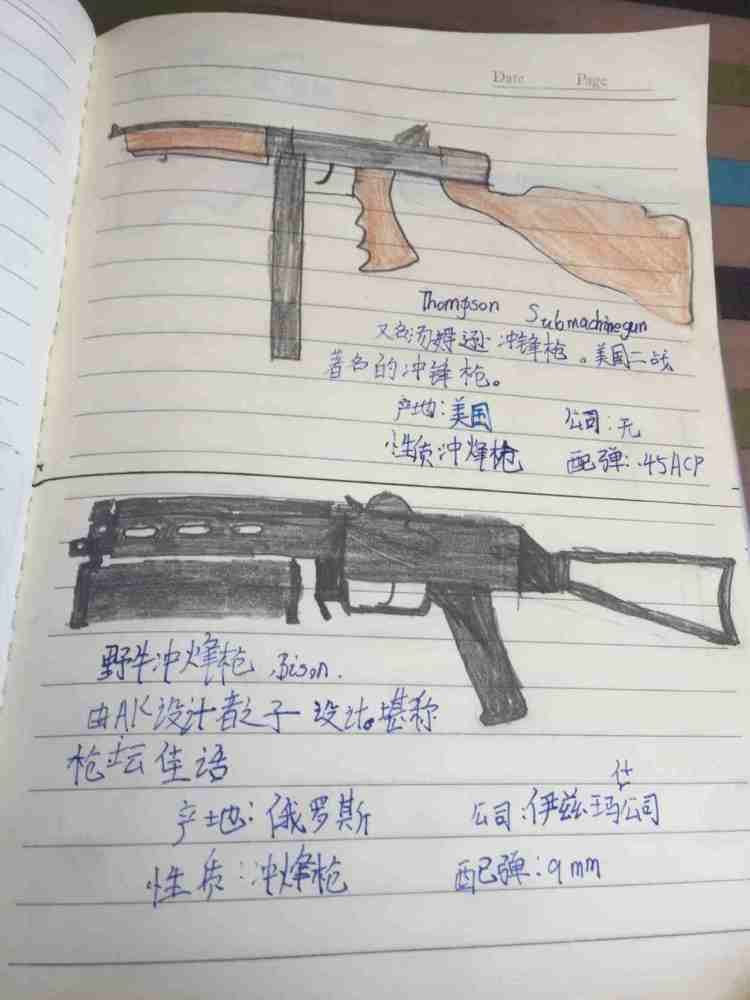 Date Page
Thompson Submachinegun
又名汤姆逊冲锋枪。美国二战
著名的冲锋枪。
产地:美国 公司:无
性质:冲烽枪 配弹:.45ACP
野牛冲烽枪 Bison.
由AK设计者之子设计。堪称
枪坛佳语
什
产地:俄罗斯 公司:伊兹玛公司
性质:冲烽枪 配弹:9mm